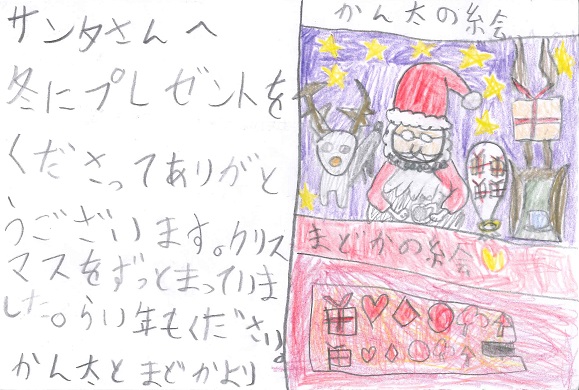 サンタさんへ
冬にプレゼントを
くださってありがと
うございます。クリス
マスをずっとまっていま
した。らい年もください。
かん太とまどかより
かん太の絵
まどかの絵